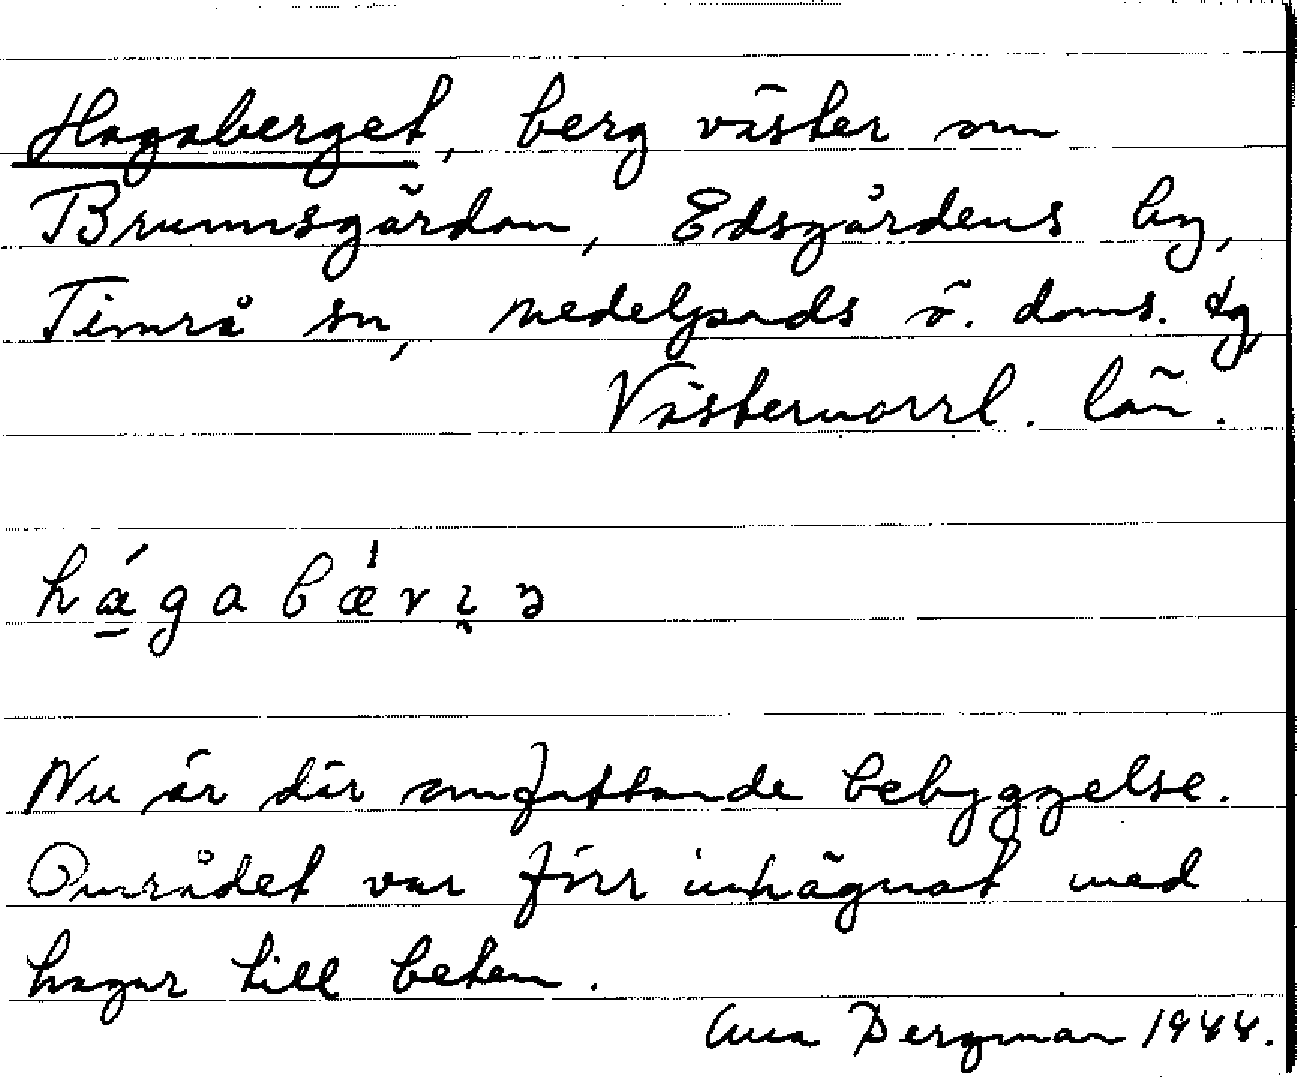 Hagaberget, berg väster om
Brunnsgärdan, Edsgårdens by,
Timrå sn, Medelpads ö. doms. tg,
Västernorrl. län.
Nu är där omfattande bebyggelse.
Området var förr inhägnat med
hagar till beten.
Bergman 1944.